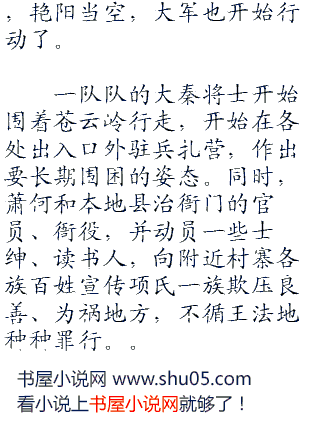 ，艳阳当空，大军也开始行
动了。
一队队的大秦将士开始
围着苍云岭行走，开始在各
处出入口外驻兵扎营，作出
要长期围困的姿态。同时，
萧何和本地县治衙门的官
员、衙役，并动员一些士
绅、读书人，向附近村寨各
族百姓宣传项氏一族欺压良
善、为祸地方，不循王法地
种种罪行。。
书屋小说网 www.shu05.com
看小说上书屋小说网就够了！